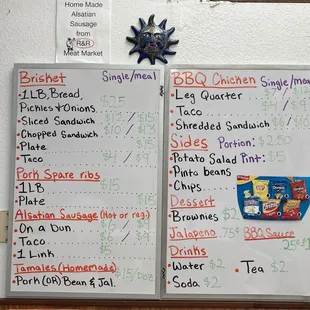 Home Made
Alsatian
Sausage
from
R&R
Meat Market
Brisket Single/meal
•1 LB, Bread,
Pickles & Onions. $25
•Sliced Sandwich
•Chopped Sandwich
•Plate $15
•Taco $4 / $9
Pork Spare ribs
•1LB $15
•Plate $15
Alsatian Sausage (Hot or reg.)
•On a Bun. / $9
•Taco / $9
•1 Link $5
Tamales (Homemade)
•Pork (OR) Bean & Jal. $15/doz
BBQ Chicken Single/meal
•Leg Quarter
•Taco
•Shredded Sandwich
Sides Portion: $2.50
•Potato Salad Pint: $5
•Pinto beans
•Chips
Dessert
•Brownies $2
Jalapeno .75¢ BBQ Sauce
25¢
Drinks
•Water $2 •Tea $2
•Soda $2